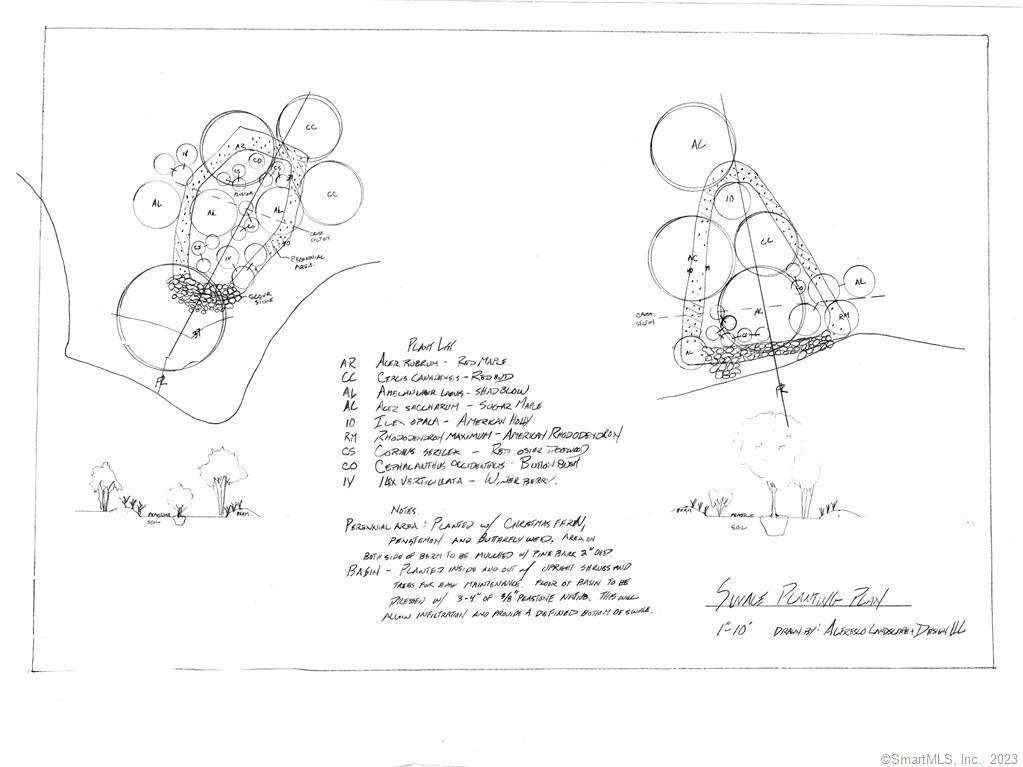 CC
AR
CC
IV
CO
CS
CS
AL
AL
AL
CO
CS
IV
IO
CROSS SECTION
PERENNIAL
AREA.
STONE
AL
IO
AC
CC
CO
AL
AL
RM
CS
AL
CROSS
SECTION
PLANT LIST
AR ACER RUBRUM - RED MAPLE
CC CERCIS CANADENSIS - REDBUD
AL AMELANCHIER LAEVIS - SHADBLOW
AC ACER SACCHARUM - SUGAR MAPLE
IO ILEX OPACA - AMERICAN HOLLY
RM RHODODENDRON MAXIMUM - AMERICAN RHODODENDRON
CS CORNUS SERICEA - RED OSIER DOGWOOD
CO CEPHALANTHUS OCCIDENTALIS - BUTTON BUSH
IV ILEX VERTICILLATA - WINTERBERRY.
BERM
SOIL
BERM
SOIL
NOTES.
PERENNIAL AREA: PLANTED W/ CHRISTMAS FERN,
PENSTEMON AND BUTTERFLY WEED. AREA ON
BOTH SIDE OF BERM TO BE MULCHED W/ PINE BARK 2" DEEP.
BASIN - PLANTED INSIDE AND OUT W/ UPRIGHT SHRUBS AND
TREES FOR EASY MAINTENANCE. FLOOR OF BASIN TO BE
DRESSED W/ 3-4" OF 3/8" PEASTONE NATIVE. THIS WILL
ALLOW INFILTRATION AND PROVIDE A DEFINED BOTTOM OF SWALE.
SWALE PLANTING PLAN
1"-10' DRAWN BY: ALFRESCO LANDSCAPE + DESIGN LLC
©SmartMLS, Inc. 2023